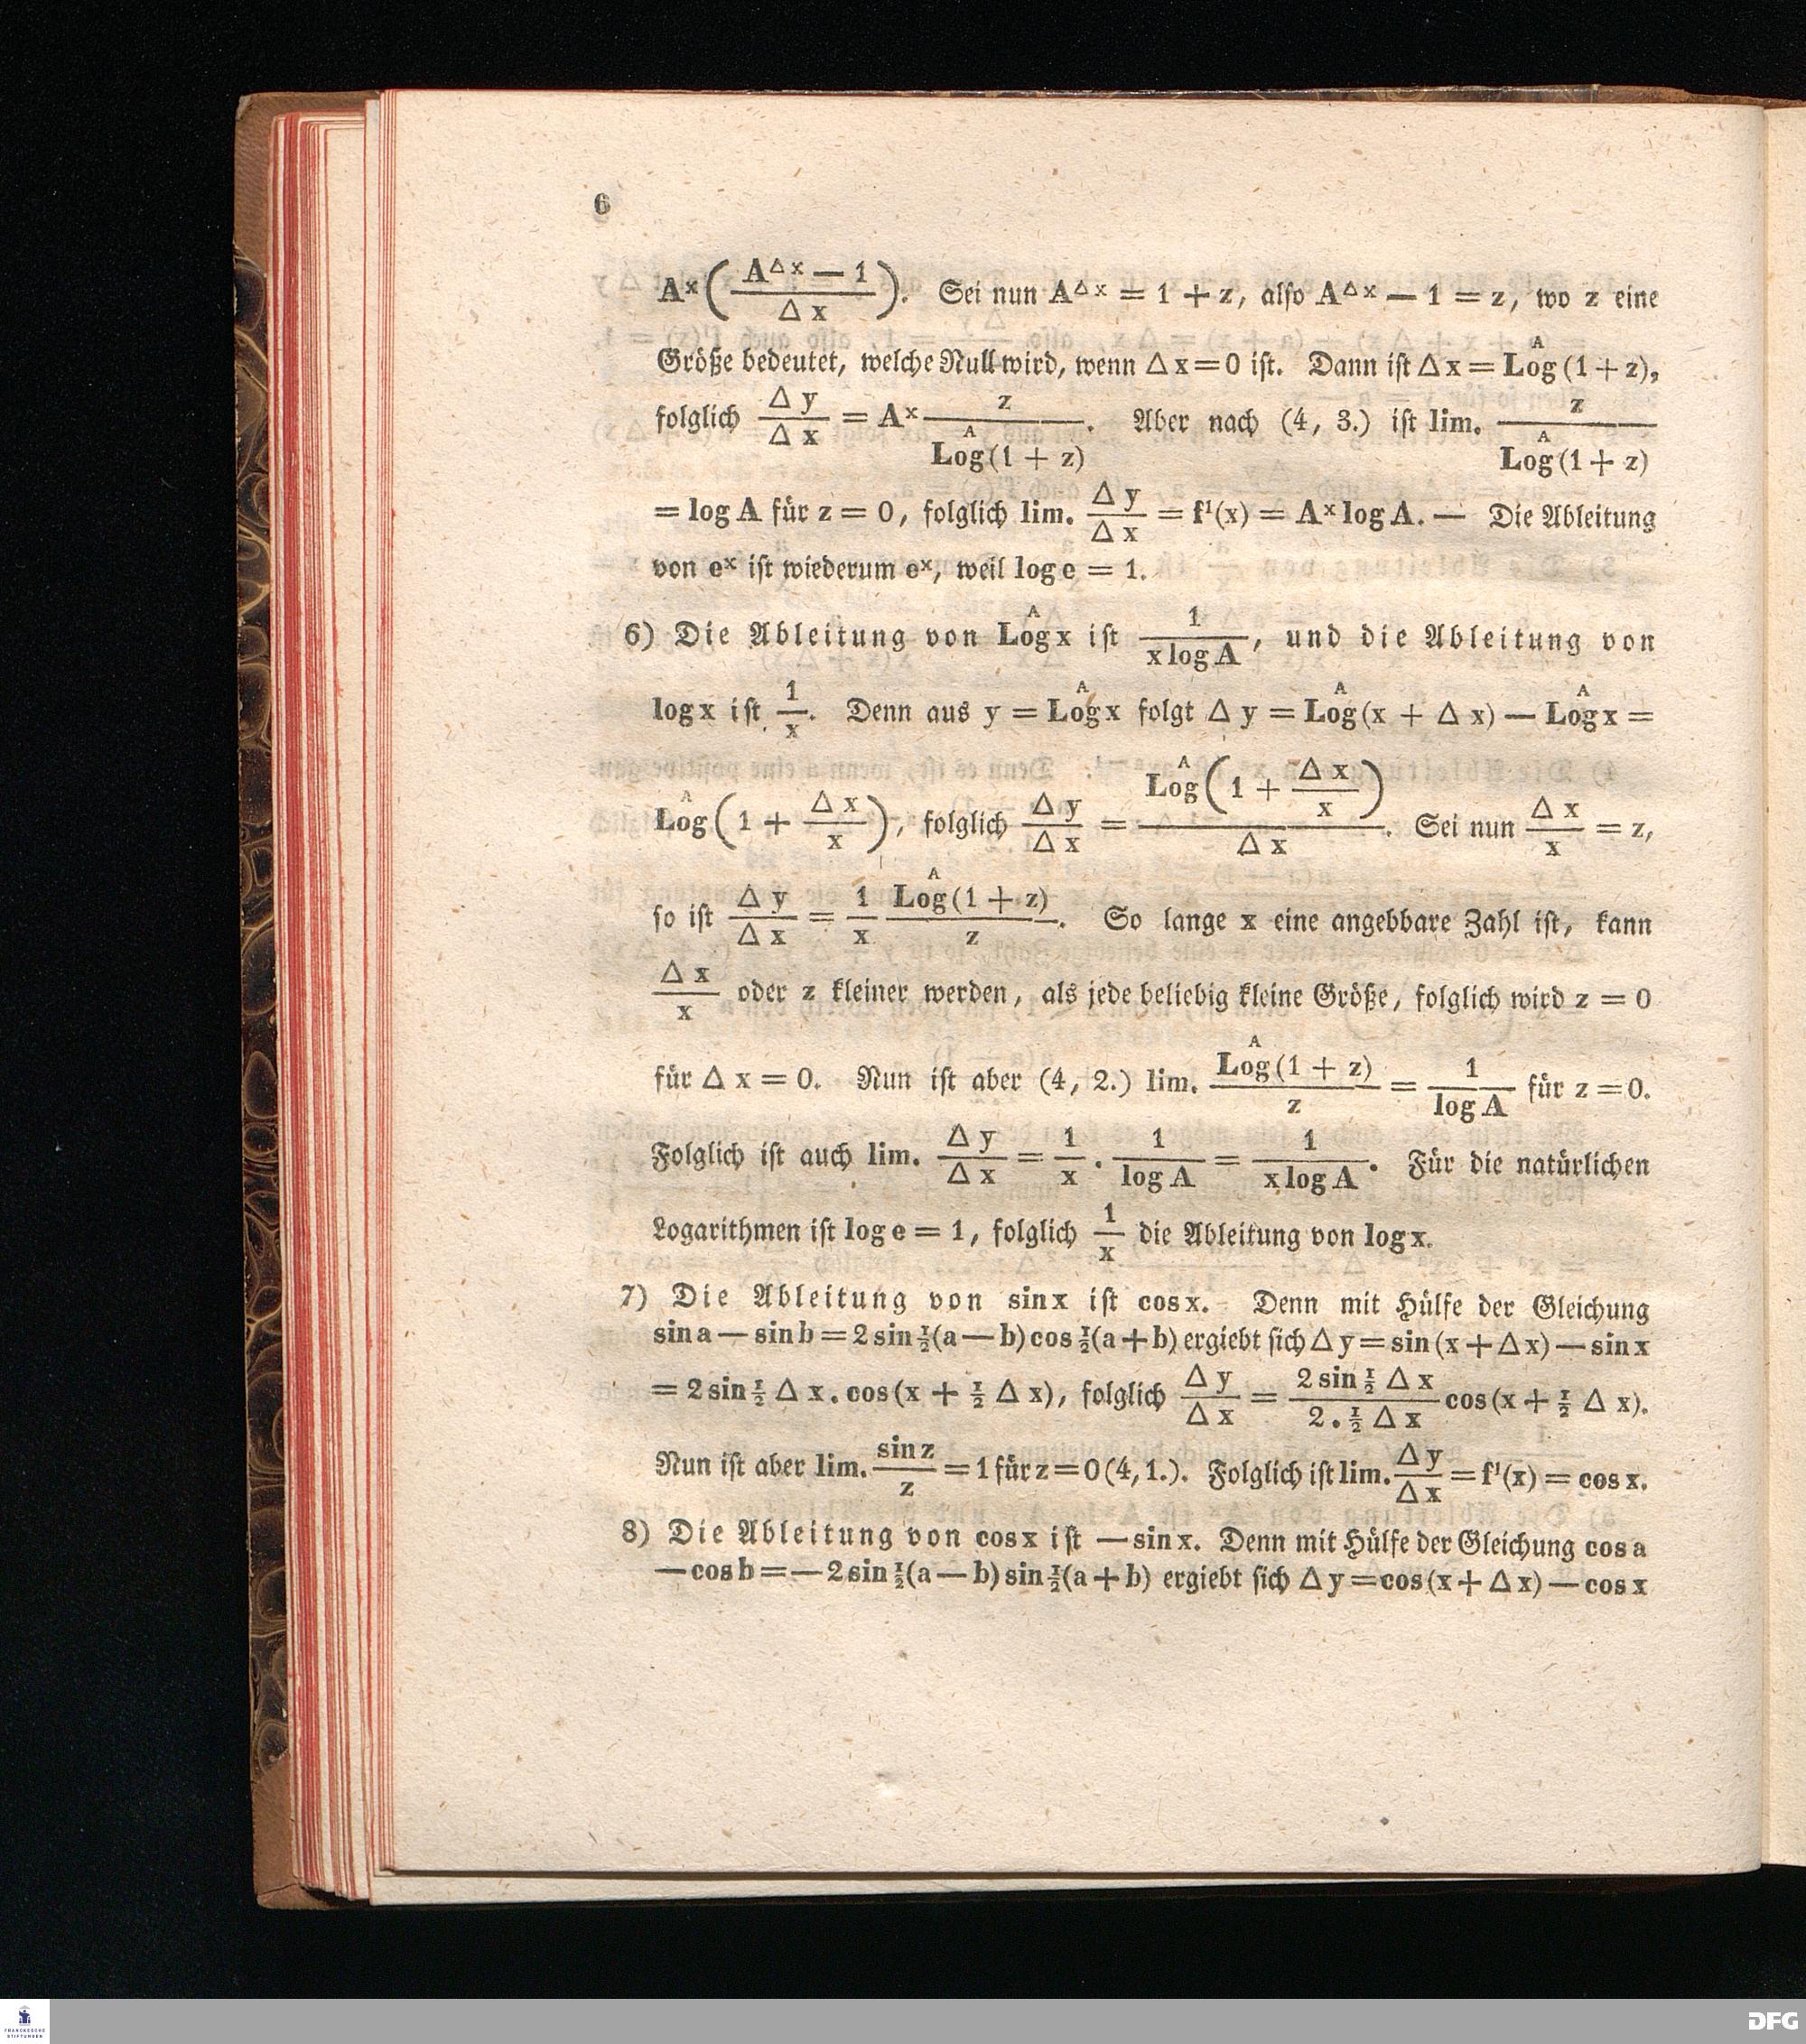 6
A^x ( (A^{Δx} — 1) / Δx ). Sei nun A^{Δx} = 1 + z, also A^{Δx} — 1 = z, wo z eine
Größe bedeutet, welche Null wird, wenn Δx = 0 ist. Dann ist Δx = \overset{A}{Log}(1 + z),
folglich Δy / Δx = A^x z / \overset{A}{Log}(1 + z). Aber nach (4, 3.) ist lim. z / \overset{A}{Log}(1 + z)
= log A für z = 0, folglich lim. Δy / Δx = f¹(x) = A^x log A. — Die Ableitung
von e^x ist wiederum e^x, weil log e = 1.
6) Die Ableitung von \overset{A}{Log} x ist 1 / (x log A), und die Ableitung von
log x ist 1 / x. Denn aus y = \overset{A}{Log} x folgt Δy = \overset{A}{Log}(x + Δx) — \overset{A}{Log} x =
\overset{A}{Log}(1 + Δx / x), folglich Δy / Δx = \overset{A}{Log}(1 + Δx / x) / Δx. Sei nun Δx / x = z,
so ist Δy / Δx = 1 / x \overset{A}{Log}(1 + z) / z. So lange x eine angebbare Zahl ist, kann
Δx / x oder z kleiner werden, als jede beliebig kleine Größe, folglich wird z = 0
für Δx = 0. Nun ist aber (4, 2.) lim. \overset{A}{Log}(1 + z) / z = 1 / log A für z = 0.
Folglich ist auch lim. Δy / Δx = 1 / x . 1 / log A = 1 / (x log A). Für die natürlichen
Logarithmen ist log e = 1, folglich 1 / x die Ableitung von log x.
7) Die Ableitung von sin x ist cos x. Denn mit Hülfe der Gleichung
sin a — sin b = 2 sin ½(a — b) cos ½(a + b) ergiebt sich Δy = sin (x + Δx) — sin x
= 2 sin ½ Δx . cos (x + ½ Δx), folglich Δy / Δx = 2 sin ½ Δx / (2 . ½ Δx) cos (x + ½ Δx).
Nun ist aber lim. sin z / z = 1 für z = 0 (4, 1.). Folglich ist lim. Δy / Δx = f¹(x) = cos x.
8) Die Ableitung von cos x ist — sin x. Denn mit Hülfe der Gleichung cos a
— cos b = — 2 sin ½(a — b) sin ½(a + b) ergiebt sich Δy = cos (x + Δx) — cos x
FRANCKESCHE
STIFTUNGEN
DFG